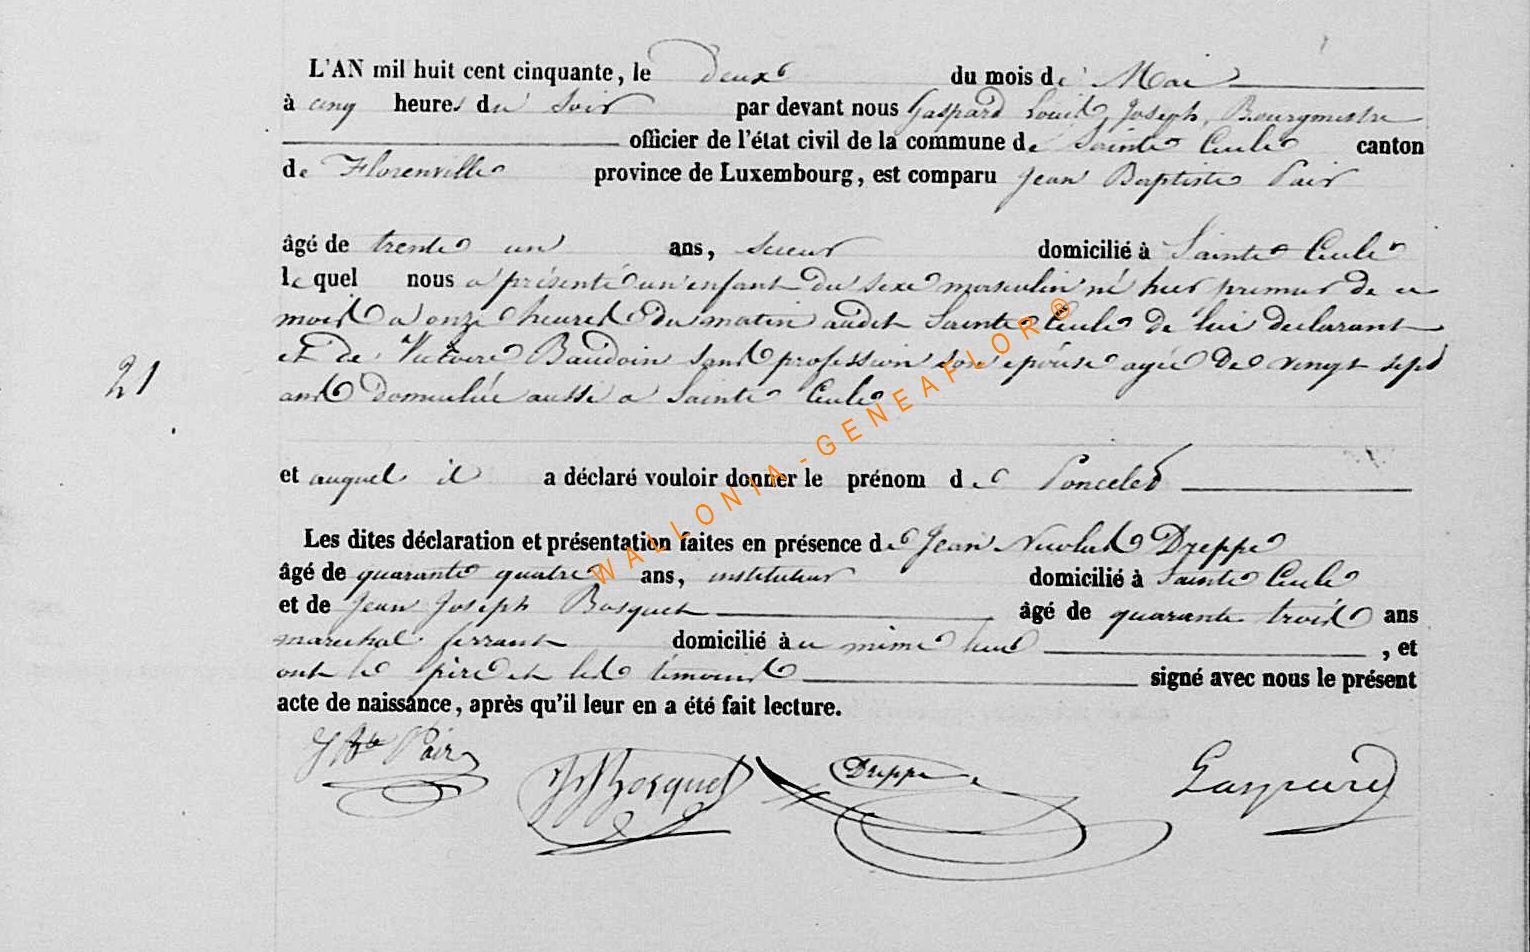 L'AN mil huit cent cinquante, le deux du mois de Mai
à cinq heures du soir par devant nous Gaspard Louis Joseph, Bourgmestre
officier de l'état civil de la commune de Sainte Cecile canton
de Florenville province de Luxembourg, est comparu Jean Baptiste Pair
âgé de trente un ans, domicilié à Sainte Cecile
lequel nous a présenté un enfant du sexe masculin né hier premier de ce
mois a onze heures du matin audit Sainte Cecile de lui declarant
et de Victoire Baudoin sans profession son epouse agée de vingt sept
21
ans domiciliée aussi a Sainte Cecile
et auquel il a déclaré vouloir donner le prénom de Poncelet
Les dites déclaration et présentation faites en présence de Jean Nicolas Dreppe
âgé de quarante quatre ans, instituteur domicilié à Sainte Cecile
et de Jean Joseph Bosquet âgé de quarante trois ans
marechal ferrant domicilié à ce même lieu , et
ont le père et les témoins signé avec nous le présent
acte de naissance, après qu'il leur en a été fait lecture.
J Bte Pair JJ Bosquet Dreppe Gaspard
WALLONIA-GENEAFLOR®